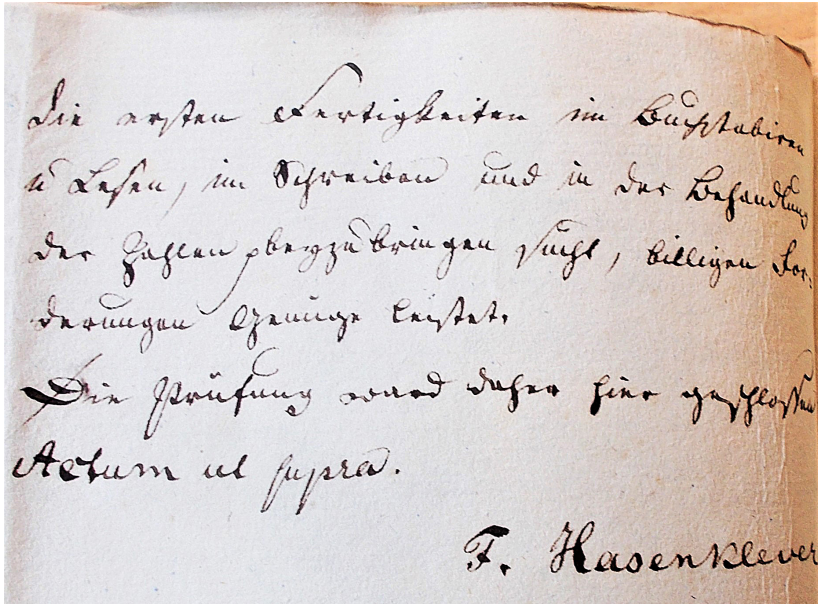 die ersten Fertigkeiten im Buchstabiren
u Lesen, im Schreiben und in der Behandlung
der Zahlen beyzubringen sucht, billigen For-
derungen Genüge leistet.
Die Prüfung ward daher hier geschlossen
Actum ut supra.
F. Hasenklever